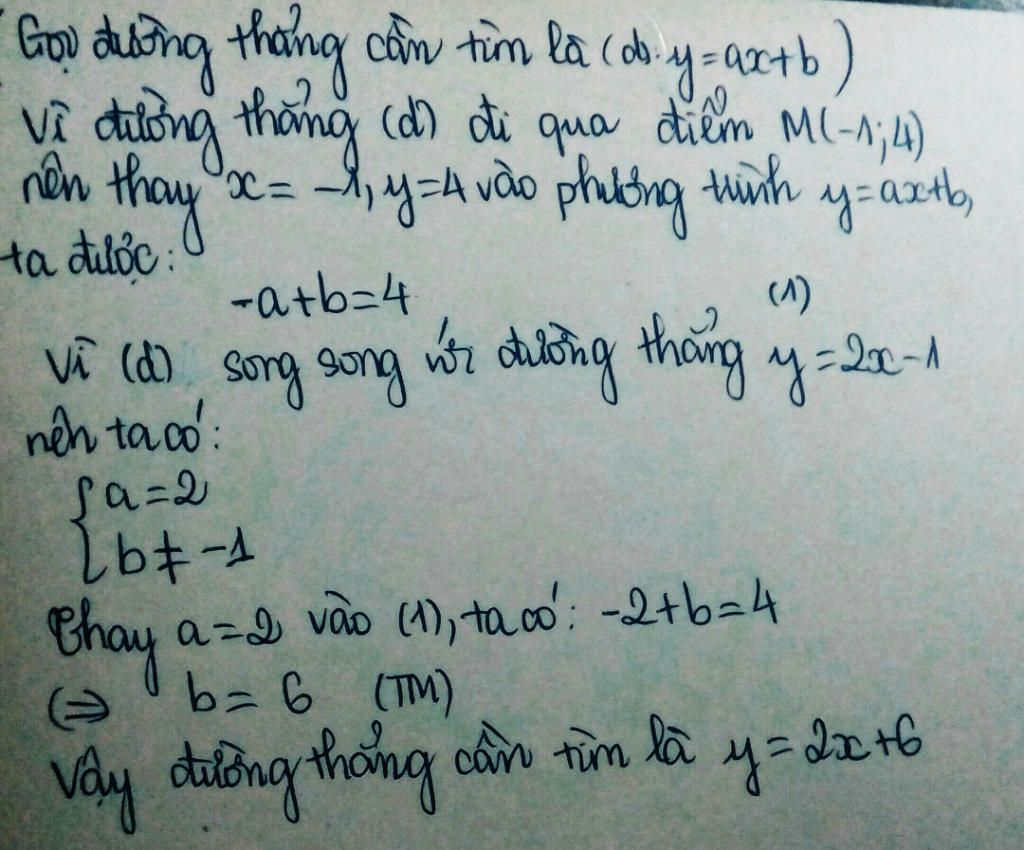 Gọi đường thẳng cần tìm là (d): y=ax+b)
Vì đường thẳng (d) đi qua điểm M(-1;4)
nên thay x= -1, y=4 vào phương trình y=ax+b,
ta được:
-a+b=4 (1)
Vì (d) song song với đường thẳng y=2x-1
nên ta có:
{a=2
b≠-1
Thay a=2 vào (1), ta có: -2+b=4
(⇒ b= 6 (TM)
Vậy đường thẳng cần tìm là y=2x+6